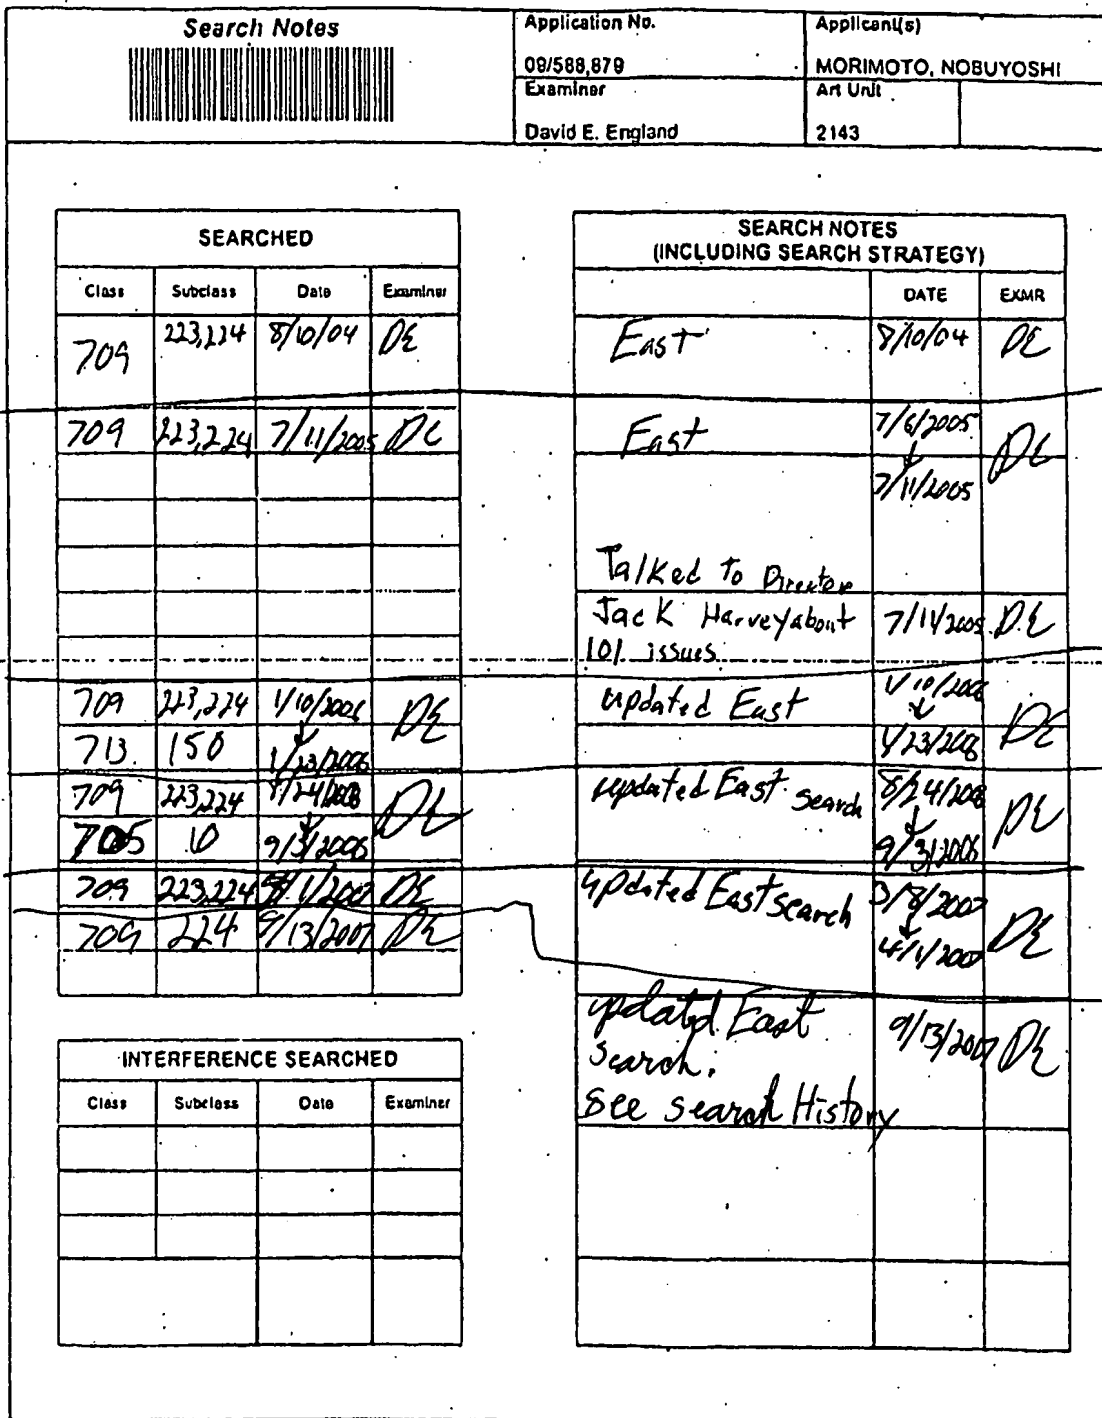 Search Notes
Application No.
Applicant(s)
09/588,879
MORIMOTO, NOBUYOSHI
Examiner
Art Unit
David E. England
2143
SEARCHED
Class Subclass Date Examiner
709 223,224 8/10/04 DE
709 223,224 7/11/2005 DE
709 223,224 1/10/2006 DE
713 150 1/23/2006
709 223,224
705 10 9/3/2006 DE
709 223,224 DE
709 224 9/13/2007 DE
INTERFERENCE SEARCHED
Class Subclass Date Examiner
SEARCH NOTES
(INCLUDING SEARCH STRATEGY)
DATE EXMR
East 8/10/04 DE
East 7/6/2005 DE
7/11/2005
Talked to Director
Jack Harvey about 7/11/2005 D.E
101 issues
updated East 1/10/2006 DE
1/23/2006
updated East search 8/24/2006 DE
9/3/2006
updated East search 3/8/2007 DE
4/1/2007
updated East
search. 9/13/2007 DE
See search History